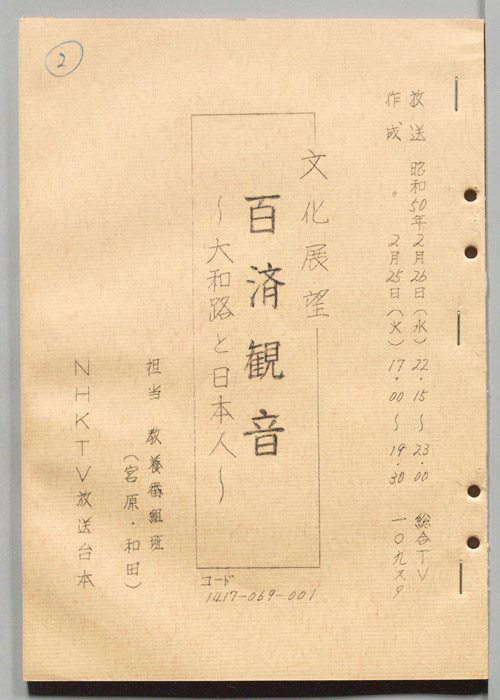 ②
放送 昭和50年2月26日(水) 22.15〜23.00 総合TV
作成 〃 2月25日(火) 17.00〜19.30 一〇九スタ
文化展望
百済観音
〜大和路と日本人〜
コード
1417-069-001
担当 教養番組班
(宮原・和田)
NHKTV放送台本